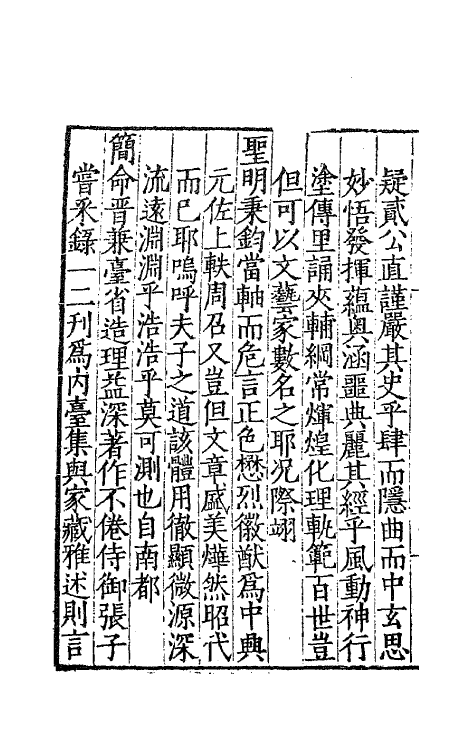 疑貳公直謹嚴其史乎肆而隱曲而中玄思
妙悟發揮蘊奧涵噩典麗其經乎風動神行
塗傳里誦夾輔綱常煇煌化理軌範百世豈
但可以文藝家數名之耶况際翊
聖明秉鈞當軸而危言正色懋烈徽猷爲中興
元佐上軼周召又豈但文章盛美燁然昭代
而已耶嗚呼夫子之道該體用徹顯微源深
流遠淵淵乎浩浩乎莫可測也自南都
簡命晋兼臺省造理益深著作不倦侍御張子
嘗采錄一二刊爲内臺集與家藏雅述則言